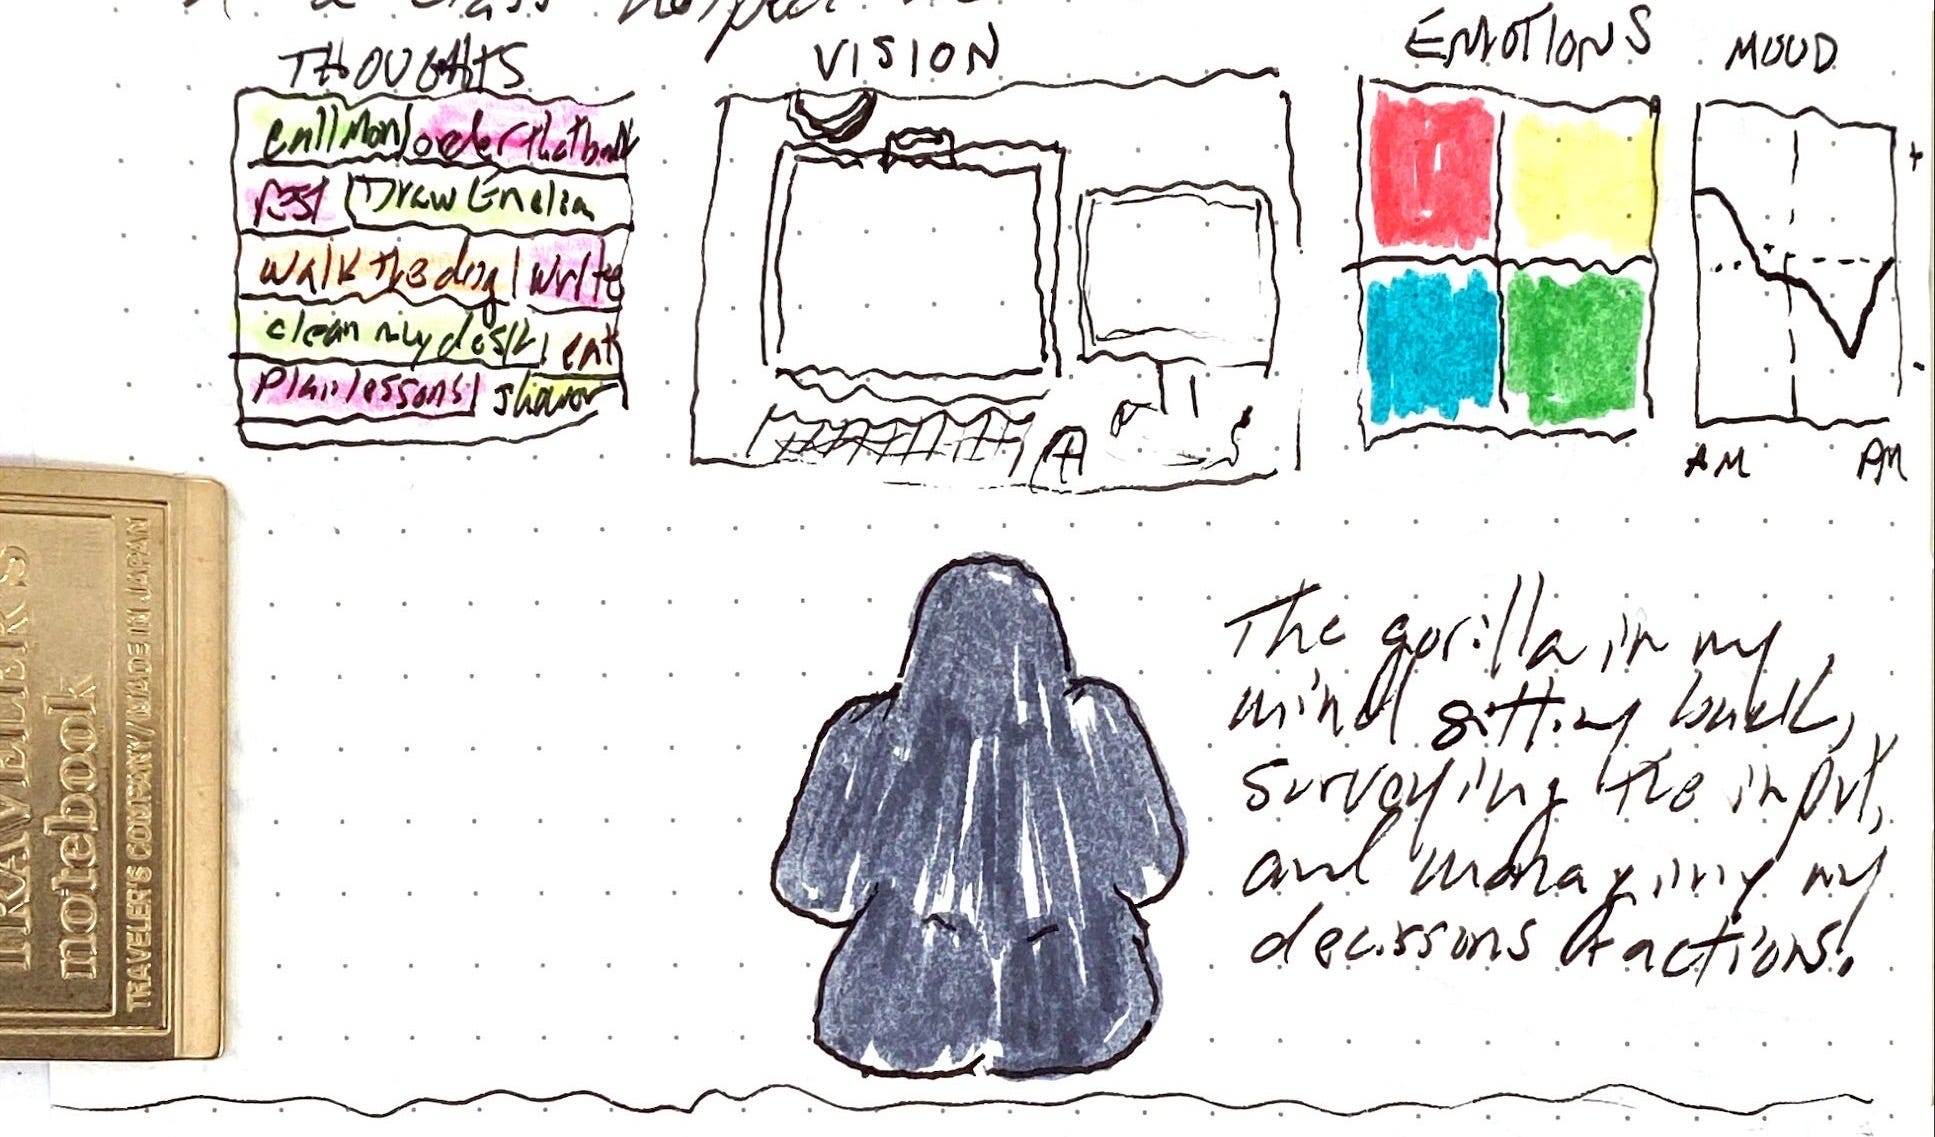 a class
THOUGHTS
VISION
EMOTIONS
MOOD
call Mom order that book
rest Draw Emelia
walk the dog write
clean my desk eat
Plan lessons shower
+
-
AM PM
The gorilla in my
mind sitting back,
surveying the input,
and managing my
decissons & actions.
TRAVELER'S
notebook
TRAVELER'S COMPANY/MADE IN JAPAN